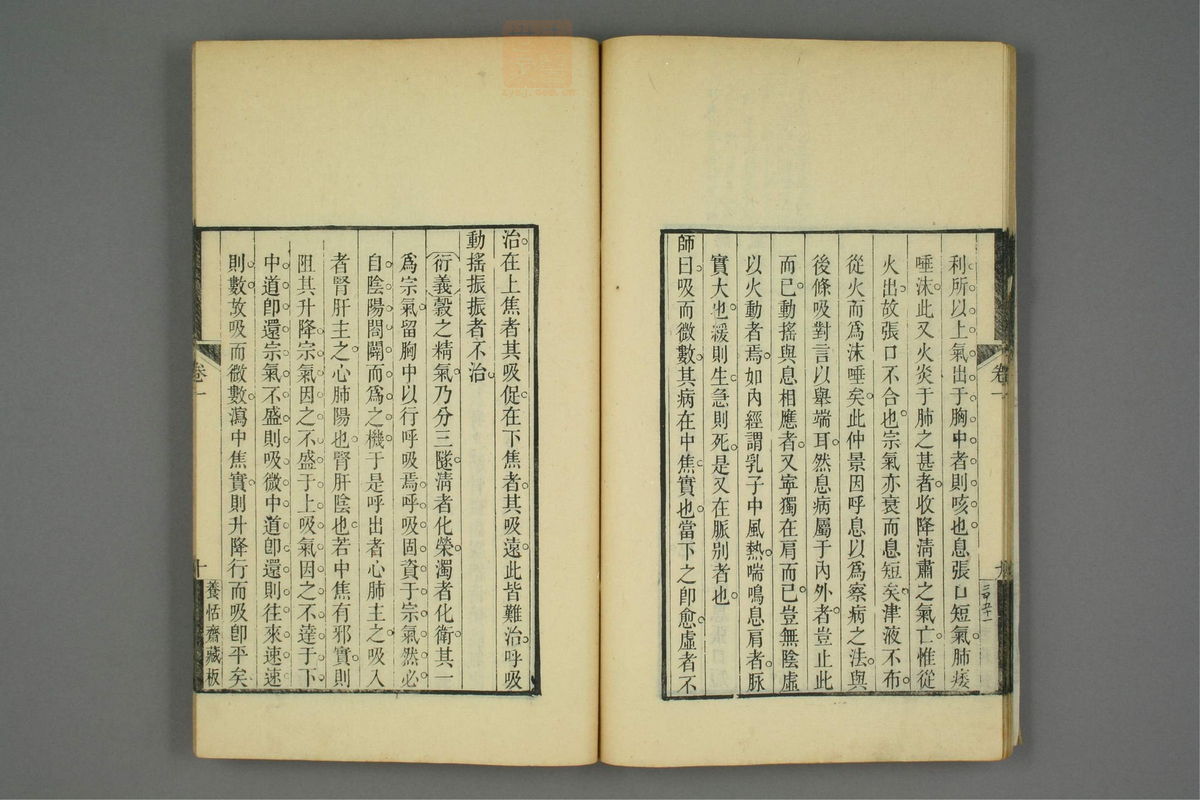 利所以上氣出于胸中者則咳也息張口短氣肺痿
唾沫此又火炎于肺之甚者收降清肅之氣亡惟從
火出故張口不合也宗氣亦衰而息短矣津液不布
從火而爲沫唾矣此仲景因呼息以爲察病之法與
後條吸對言以舉端耳然息病屬于內外者豈止此
而已動搖與息相應者又寧獨在肩而已豈無陰虛
以火動者焉如內經謂乳子中風熱喘鳴息肩者脈
實大也緩則生急則死是又在脈別者也
師曰吸而微數其病在中焦實也當下之卽愈虛者不
卷一
治在上焦者其吸促在下焦者其吸遠此皆難治呼吸
動搖振振者不治
衍義穀之精氣乃分三隧清者化榮濁者化衛其一
爲宗氣留胸中以行呼吸焉呼吸固資于宗氣然必
自陰陽闔闢而爲之機于是呼出者心肺主之吸入
者腎肝主之心肺陽也腎肝陰也若中焦有邪實則
阻其升降宗氣因之不盛于上吸氣因之不達于下
中道卽還宗氣不盛則吸微中道卽還則往來速速
則數故吸而微數瀉中焦實則升降行而吸卽平矣
卷一
十
養恬齋藏板